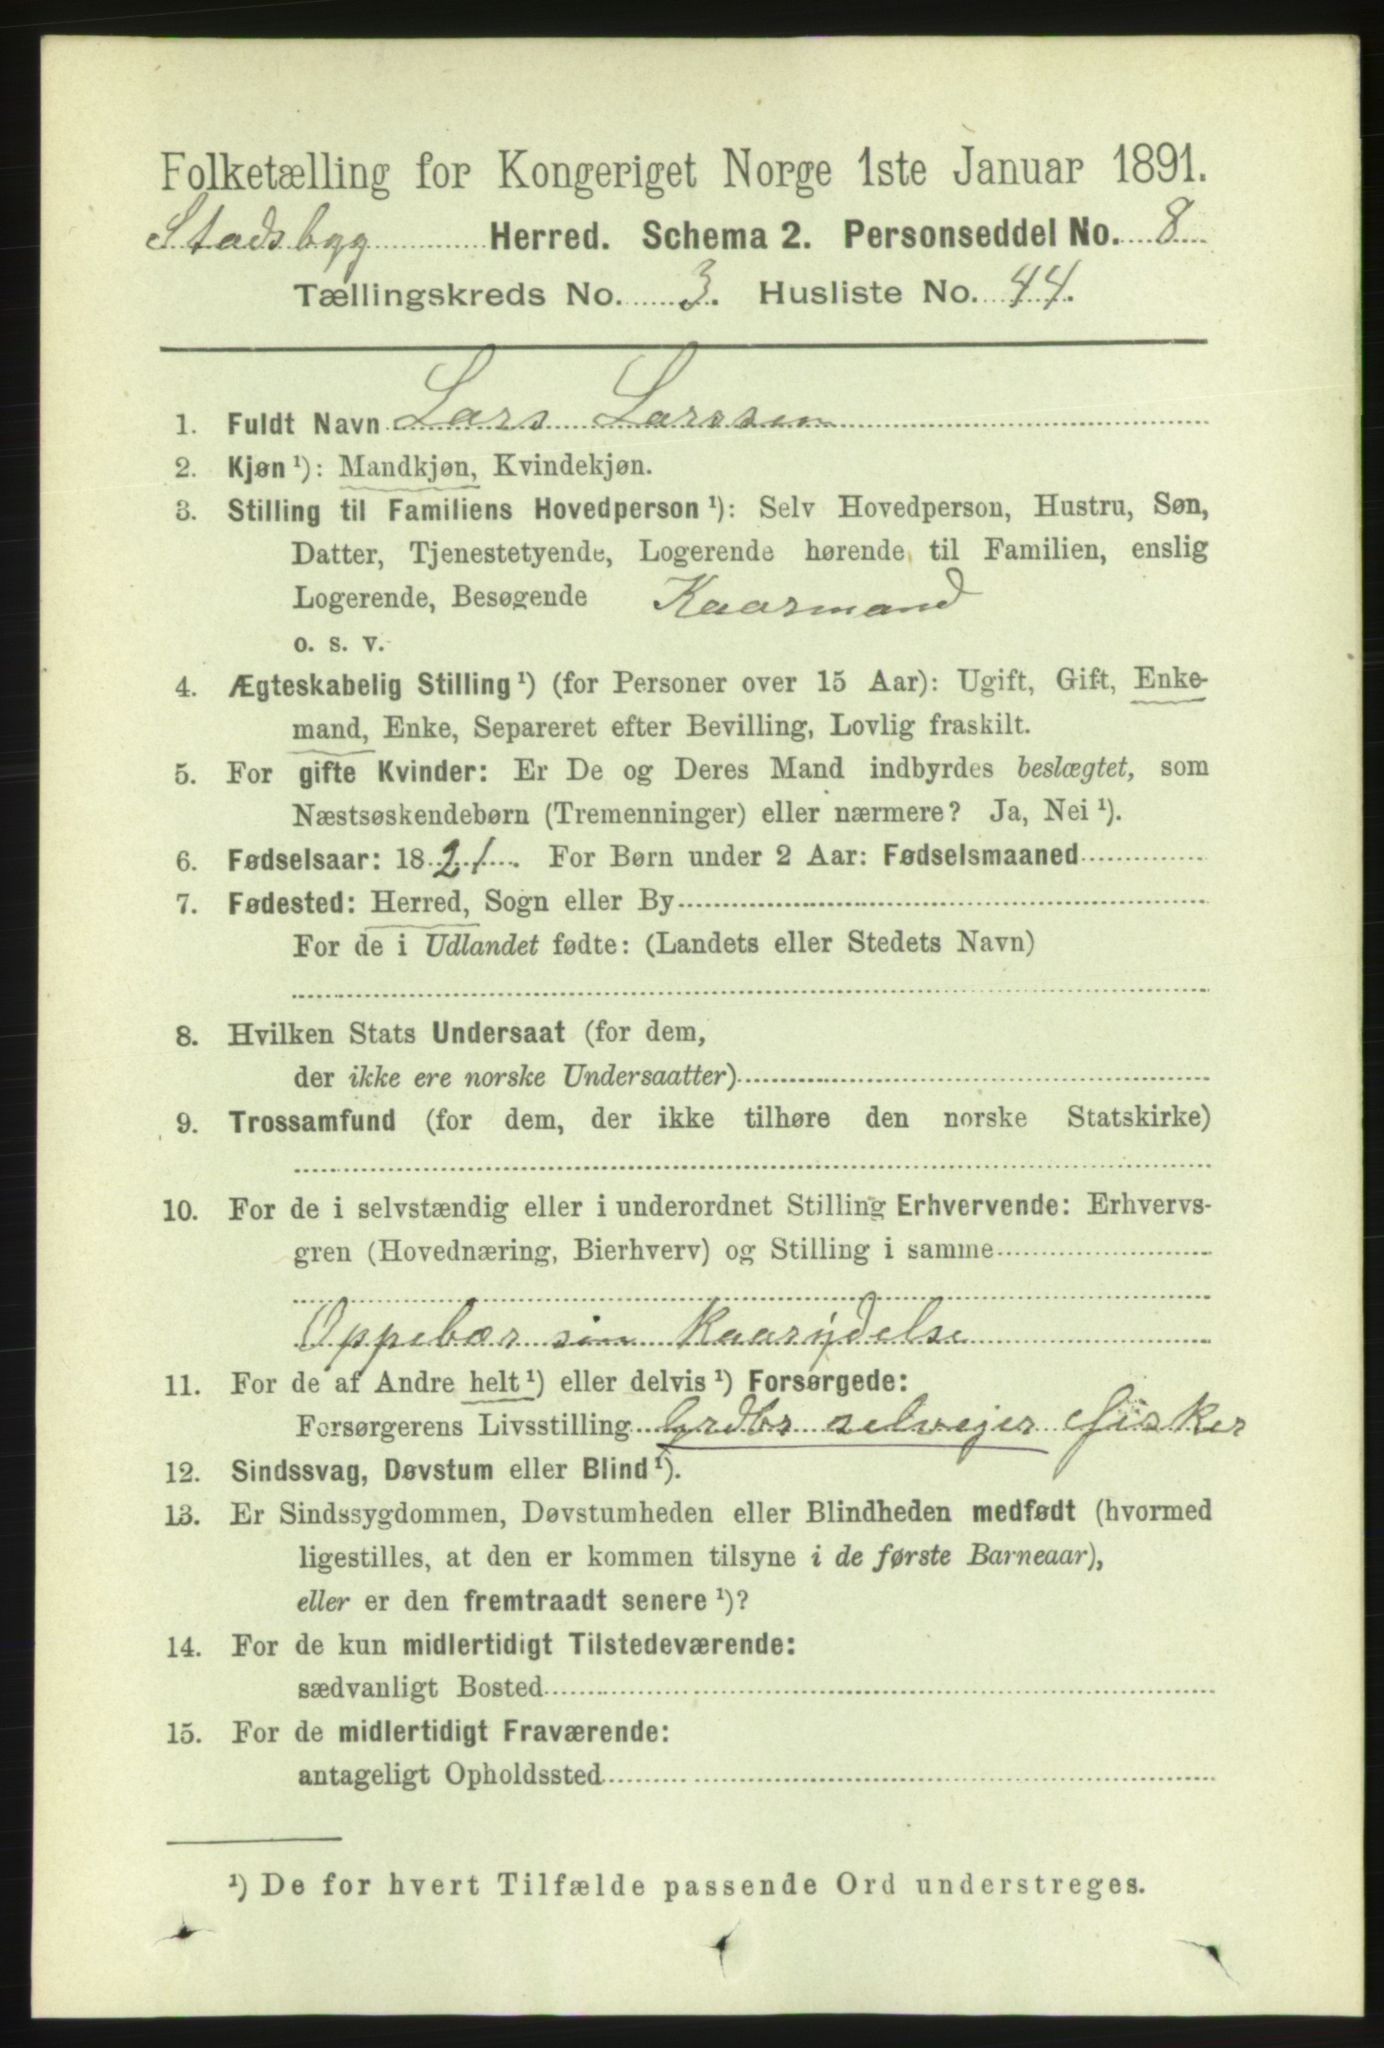 Folketælling for Kongeriget Norge 1ste Januar 1891.
Stadsbygg Herred. Schema 2. Personseddel No. 8
Tællingskreds No. 3. Husliste No. 44.
1. Fuldt Navn Lars Larssen
2. Kjøn ¹): Mandkjøn, Kvindekjøn.
3. Stilling til Familiens Hovedperson ¹): Selv Hovedperson, Hustru, Søn,
Datter, Tjenestetyende, Logerende hørende til Familien, enslig
Logerende, Besøgende Kaarmand
o. s. v.
4. Ægteskabelig Stilling ¹) (for Personer over 15 Aar): Ugift, Gift, Enke-
mand, Enke, Separeret efter Bevilling, Lovlig fraskilt.
5. For gifte Kvinder: Er De og Deres Mand indbyrdes beslægtet, som
Næstsøskendebørn (Tremenninger) eller nærmere? Ja, Nei ¹).
6. Fødselsaar: 1821. For Børn under 2 Aar: Fødselsmaaned
7. Fødested: Herred, Sogn eller By
For de i Udlandet fødte: (Landets eller Stedets Navn)
8. Hvilken Stats Undersaat (for dem,
der ikke ere norske Undersaatter)
9. Trossamfund (for dem, der ikke tilhøre den norske Statskirke)
10. For de i selvstændig eller i underordnet Stilling Erhvervende: Erhvervs-
gren (Hovednæring, Bierhverv) og Stilling i samme
Oppebær sin Kaarydelse
11. For de af Andre helt ¹) eller delvis ¹) Forsørgede:
Forsørgerens Livsstilling Grdbr selvejer Fisker
12. Sindssvag, Døvstum eller Blind ¹).
13. Er Sindssygdommen, Døvstumheden eller Blindheden medfødt (hvormed
ligestilles, at den er kommen tilsyne i de første Barneaar),
eller er den fremtraadt senere ¹)?
14. For de kun midlertidigt Tilstedeværende:
sædvanligt Bosted
15. For de midlertidigt Fraværende:
antageligt Opholdssted
¹) De for hvert Tilfælde passende Ord understreges.